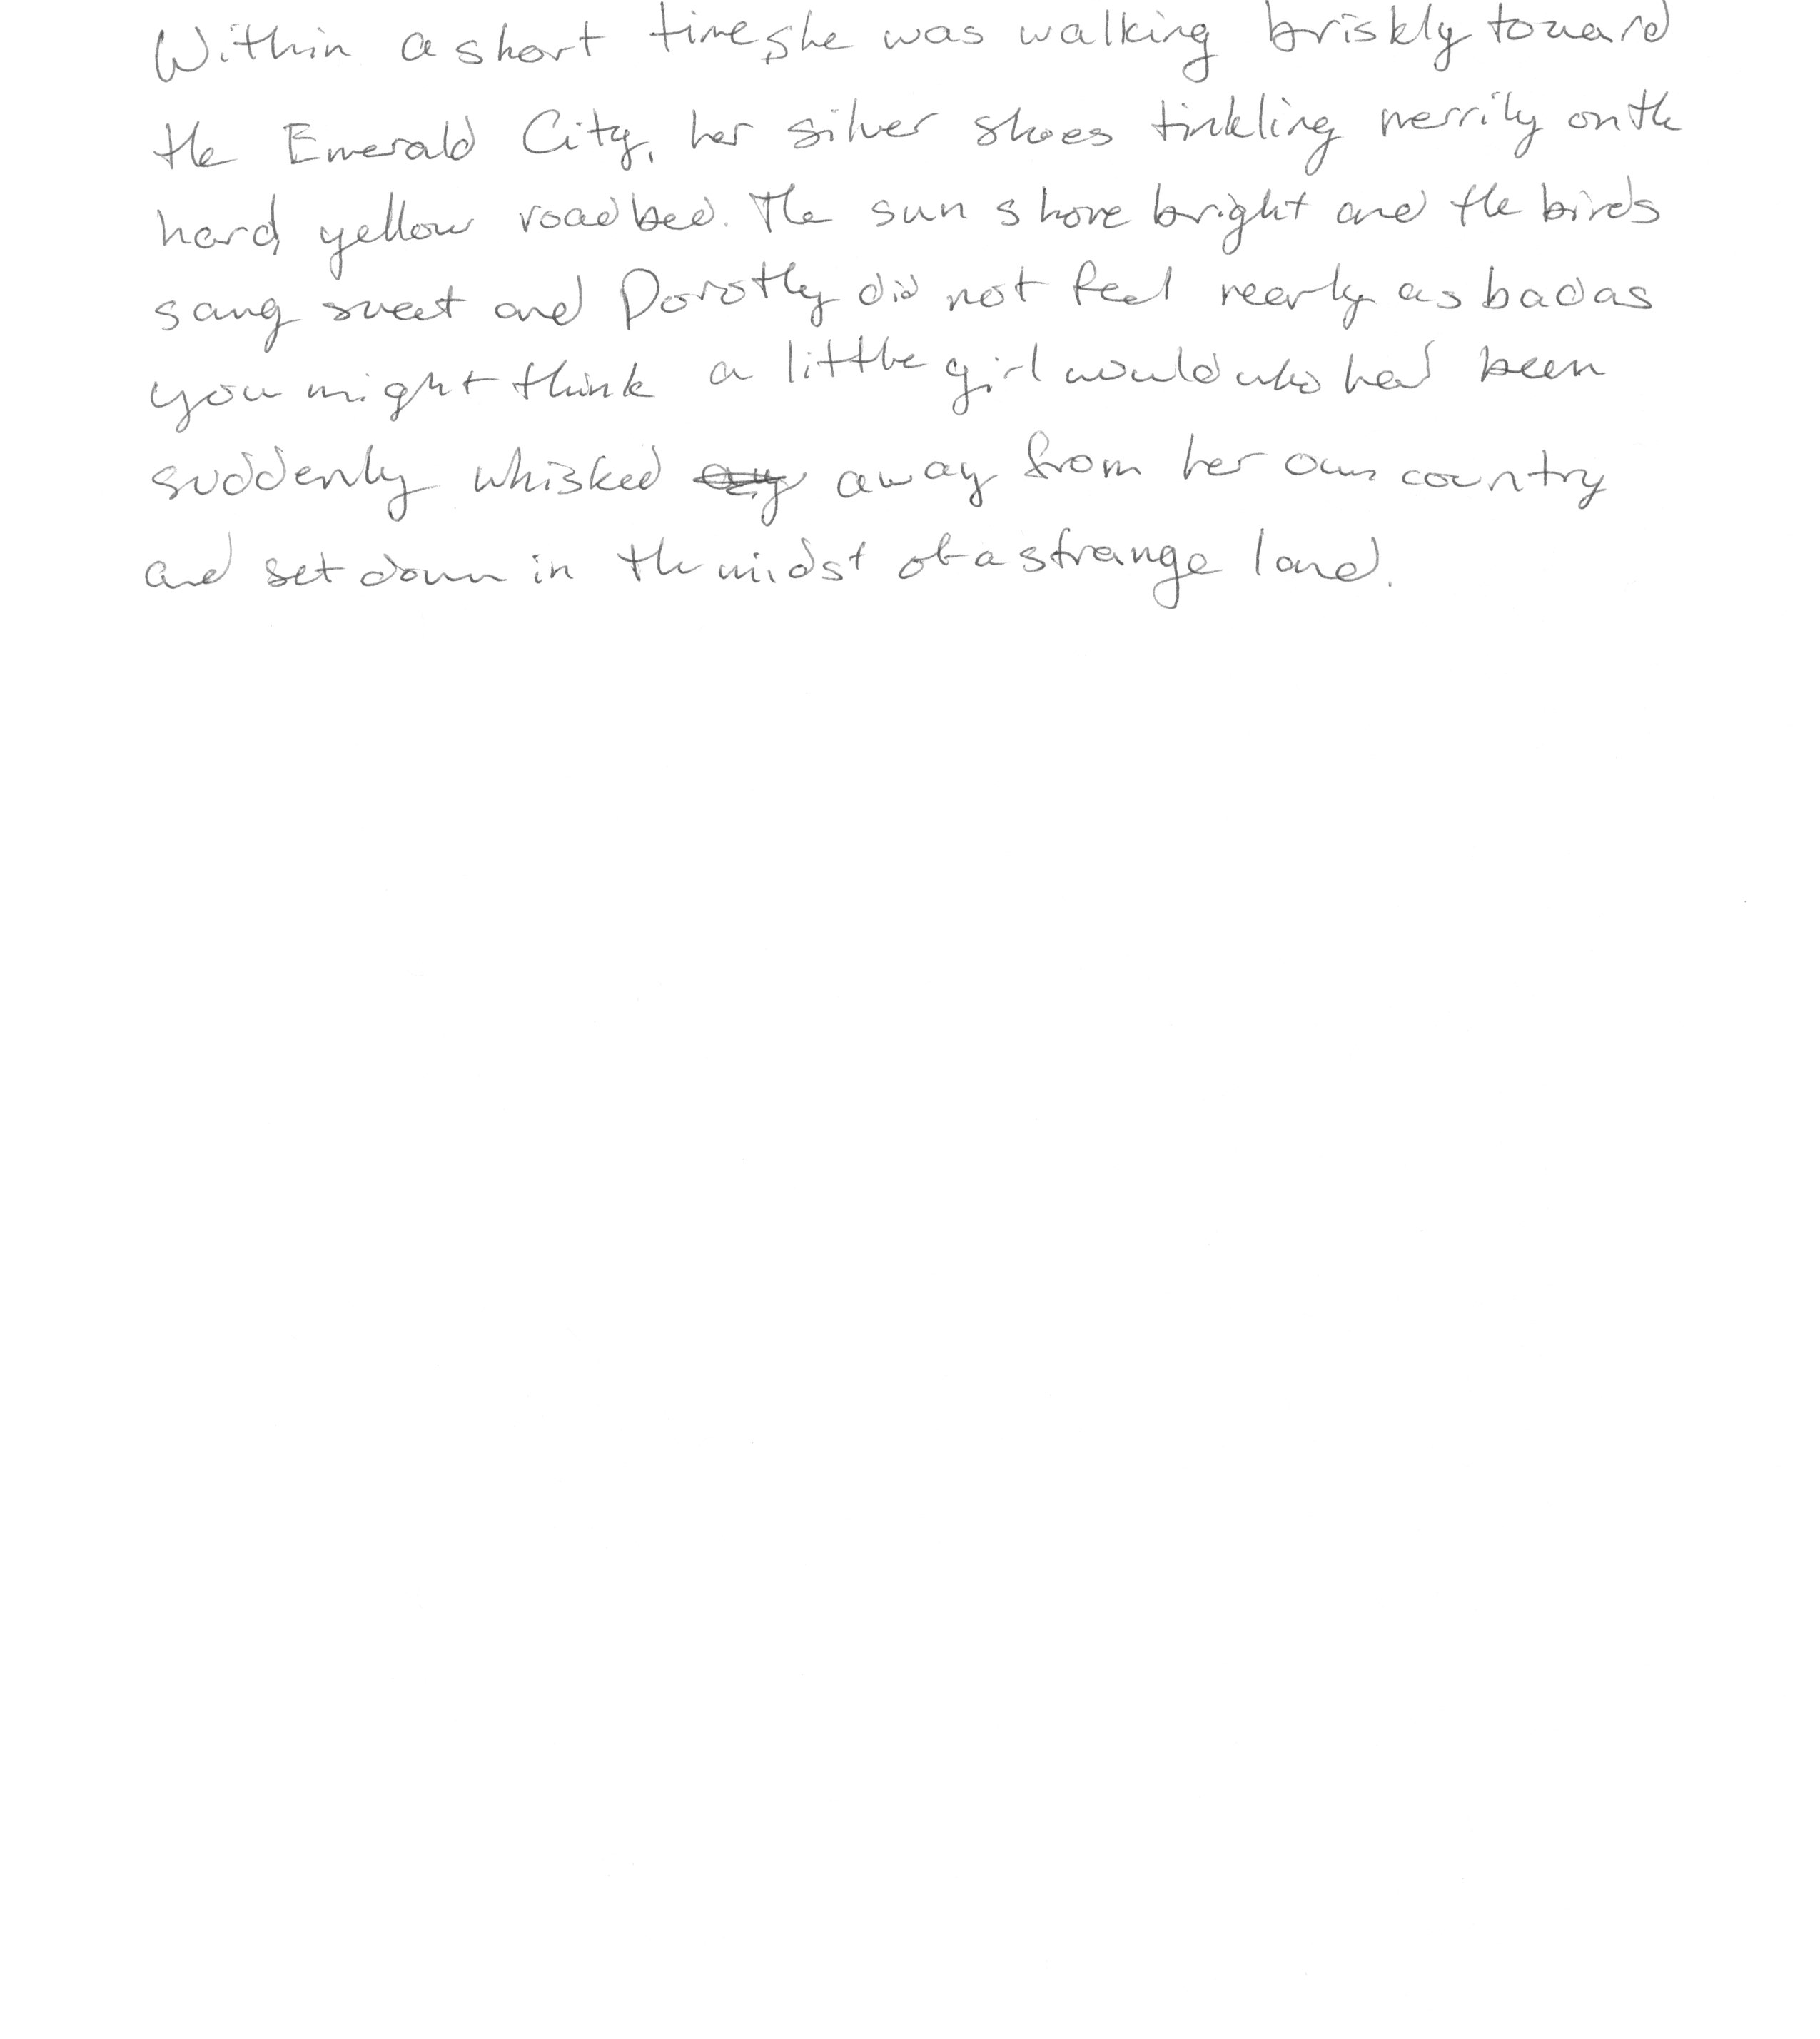 Within a short time, she was walking briskly toward
the Emerald City, her silver shoes tinkling merrily on the
hard, yellow roadbed. The sun shone bright and the birds
sang sweet and Dorothy did not feel nearly as bad as
you might think a little girl would who had been
suddenly whisked away from her own country
and set down in the midst of a strange land.